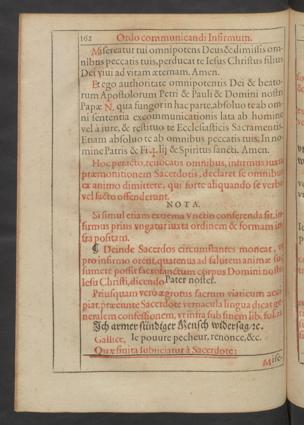 162 Ordo communicandi Infirmum.
Misereatur tui omnipotens Deus & dimissis om-
nibus peccatis tuis, perducat te Iesus Christus filius
Dei vivi ad vitam æternam. Amen.
Et ego authoritate omnipotentis Dei & beato-
rum Apostolorum Petri & Pauli & Domini nostri
Papæ N. qua fungor in hac parte, absoluo te ab om-
ni sententia excommunicationis lata ab homine
vel à iure, & restituo te Ecclesiasticis Sacramentis
Etiam absoluo te ab omnibus peccatis tuis, In no-
mine Patris & Fi✝lij & Spiritus sancti. Amen.
Hoc peracto, reuocatis omnibus, infirmus iuxta
præmonitionem Sacerdotis, declaret se omnibus
ex animo dimittere, qui forte aliquando se verbo
vel facto offenderunt.
NOTA.
Si simul etiam extrema Vnctio conferenda sit, in-
firmus prius vngatur iuxta ordinem & formam in-
fra positam.
¶ Deinde Sacerdos circumstantes moneat, vt
pro infirmo orent, quatenus ad salutem animæ suæ
sumere possit sacrosanctum corpus Domini nostri
Iesu Christi, dicendo Pater noster.
Priusquam vero ægrotus sacrum viaticum acci-
piat, præeunte Sacerdote vernacula lingua dicat ge-
neralem confessionem, vt infra sub finem lib. fol.
Ich armer sündiger Mensch widersag &c.
Gallicè, Ie pouure pecheur, renonce, &c.
Qua finita subiiciatur à Sacerdote:
Mise-